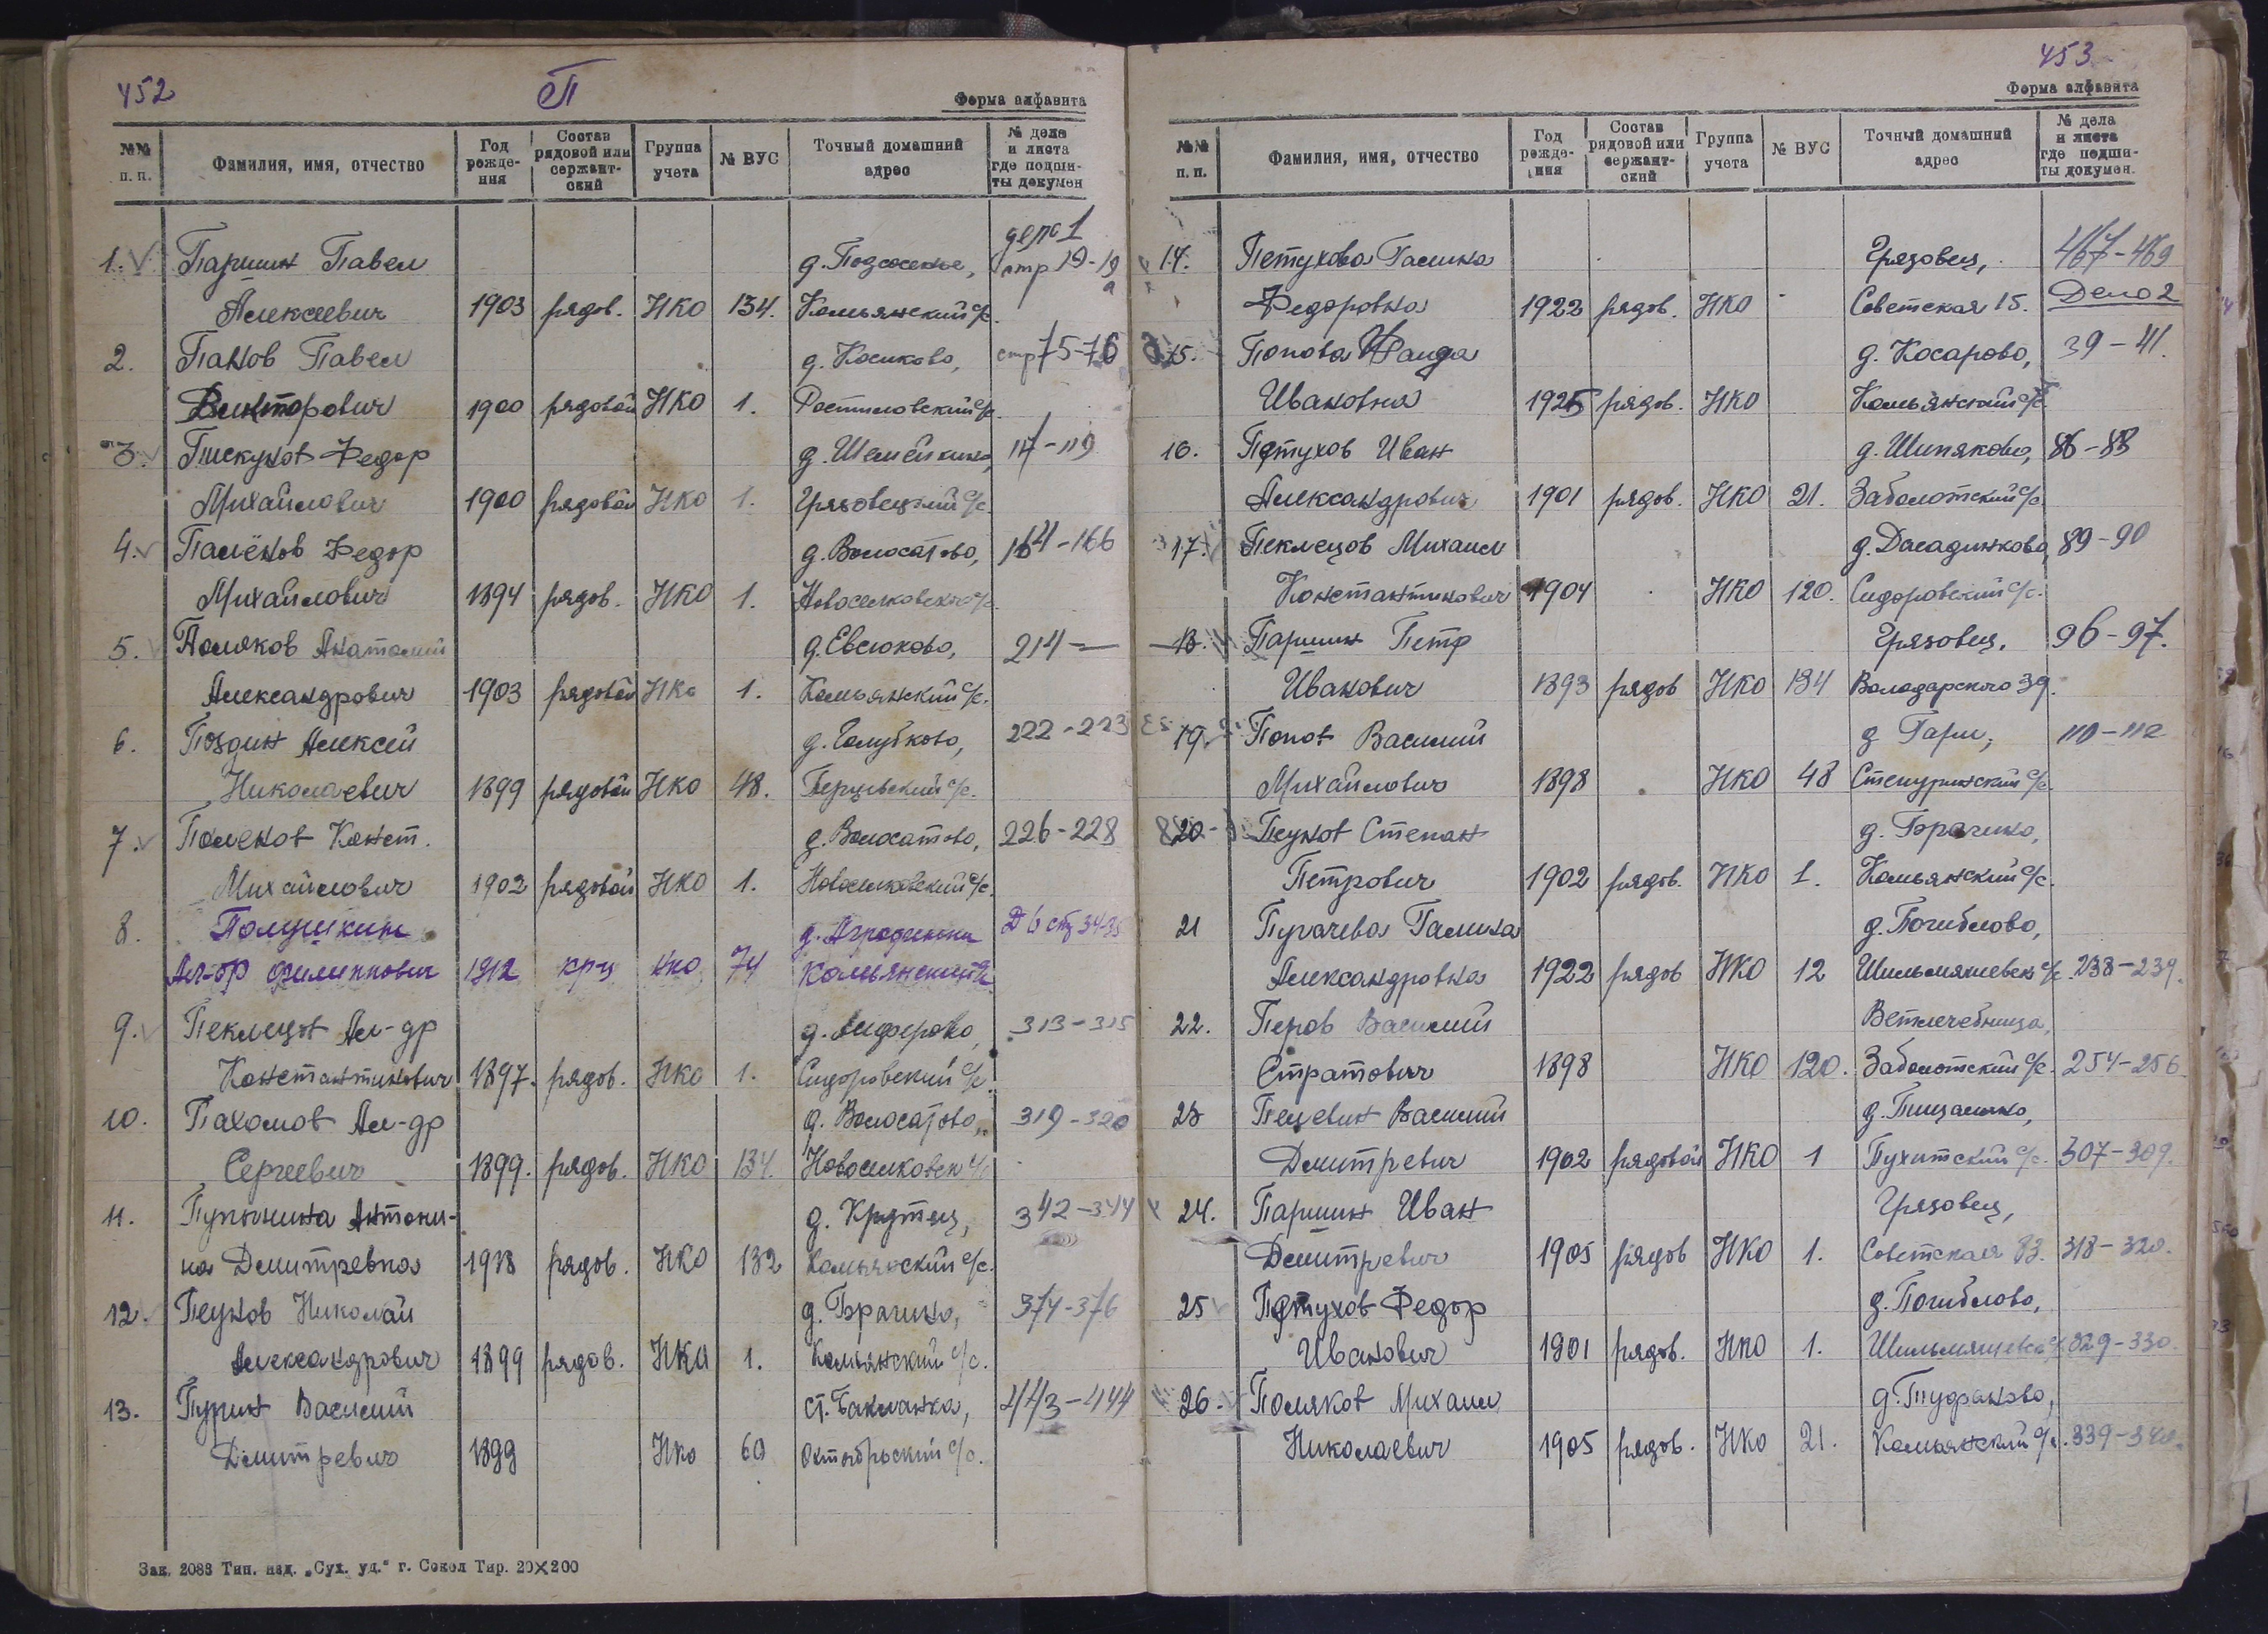 452
П
Форма алфавита
№№ п. п. Фамилия, имя, отчество Год рожде-ния Состав рядовой или сержант-ский Группа учета № ВУС Точный домашний адрес № дела и листа где подши-ты докумен
дело 1
1. Паршин Павел д. Подсосенье, стр 19-19а
Алексеевич 1903 рядов. НКО 134. Комьянский с/с.
2. Панов Павел д. Косиково, стр 75-76
Викторович 1900 рядовой НКО 1. Ростиловский с/с.
3. Пискунов Федор д. Шемейкино, 117-119
Михайлович 1900 рядовой НКО 1. Грязовецкий с/с.
4. Палёнов Федор д. Волосатово, 164-166
Михайлович 1894 рядов. НКО 1. Новоселковский с/с.
5. Поляков Анатолий д. Евсюково, 214 —
Александрович 1903 рядовой НКО 1. Комьянский с/с.
6. Поздин Алексей д. Голубково, 222-223
Николаевич 1899 рядовой НКО 48. Перцевский с/с.
7. Паленов Конст. д. Волосатово, 226-228
Михайлович 1902 рядовой НКО 1. Новоселковский с/с.
8. Полушкин Д 6 стр 34-35
Ал-др Филиппович 1912 кр-ц НКО 74 Комьянский с/с
9. Пеклецов Ал-др д. Анферово, 313-315
Константинович 1897. рядов. НКО 1. Сидоровский с/с.
10. Пахомов Ал-др д. Волосатово, 319-320
Сергеевич 1899. рядов. НКО 134. Новоселковск с/с
11. Пупынина Антони- д. Крутец, 342-344
на Дмитревна 1918 рядов. НКО 132 Комьянский с/с.
12. Пеунов Николай д. Брагино, 374-376
Александрович 1899 рядов. НКО 1. Комьянский с/с.
13. Пурин Василий ст. Бакланка, 443-444
Дмитревич 1899 НКО 60 Октябрьский с/с.
Зак. 2083 Тип. изд. „Сух. уд." г. Сокол Тир. 20×200
453
Форма алфавита
№№ п. п. Фамилия, имя, отчество Год рожде-ния Состав рядовой или сержант-ский Группа учета № ВУС Точный домашний адрес № дела и листа где подши-ты докумен.
14. Петухова Галина Грязовец, 467-469
Федоровна 1922 рядов. НКО Советская 15. Дело 2
15. Попова Фаида д. Косарово, 39-41.
Ивановна 1925 рядов. НКО Комьянский с/с
16. Петухов Иван д. Шипяково, 86-88
Александрович 1901 рядов. НКО 21. Заболотский с/с
17. Пеклецов Михаил 89-90
Константинович 1904 НКО 120. Сидоровский с/с.
18. Паршин Петр Грязовец, 96-97.
Иванович 1893 рядов НКО 134 Володарского 39.
19. Попов Василий д Гари, 110-112
Михайлович 1898 НКО 48 Степуринский с/с
20 Пеунов Степан д. Брагино,
Петрович 1902 рядов. НКО 1. Комьянский с/с.
21 Пугачева Галина д. Погиблово,
Александровна 1922 рядов НКО 12 Шильмяшевск с/с 238-239.
22. Перов Василий Ветлечебница,
Стратович 1898 НКО 120. Заболотский с/с. 254-256.
23 Пецевин Василий д. Пищалино,
Дмитревич 1902 рядовой НКО 1 Пухитский с/с. 307-309.
24. Паршин Иван Грязовец,
Дмитревич 1905 рядов НКО 1. Советская 83. 318-320.
25 Петухов Федор д. Погиблово,
Иванович 1901 рядов. НКО 1. Шильмяшевск с/с 329-330.
26. Поляков Михаил д. Пуфаново,
Николаевич 1905 рядов. НКО 21. Комьянский с/с. 339-340.